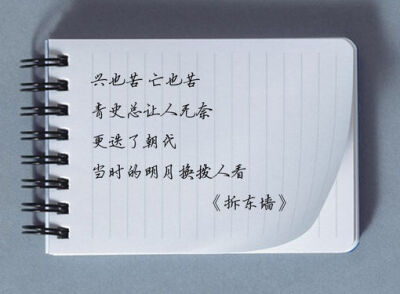 兴也苦 亡也苦
青史总让人无奈
更迭了朝代
当时的明月换拨人看
《拆东墙》